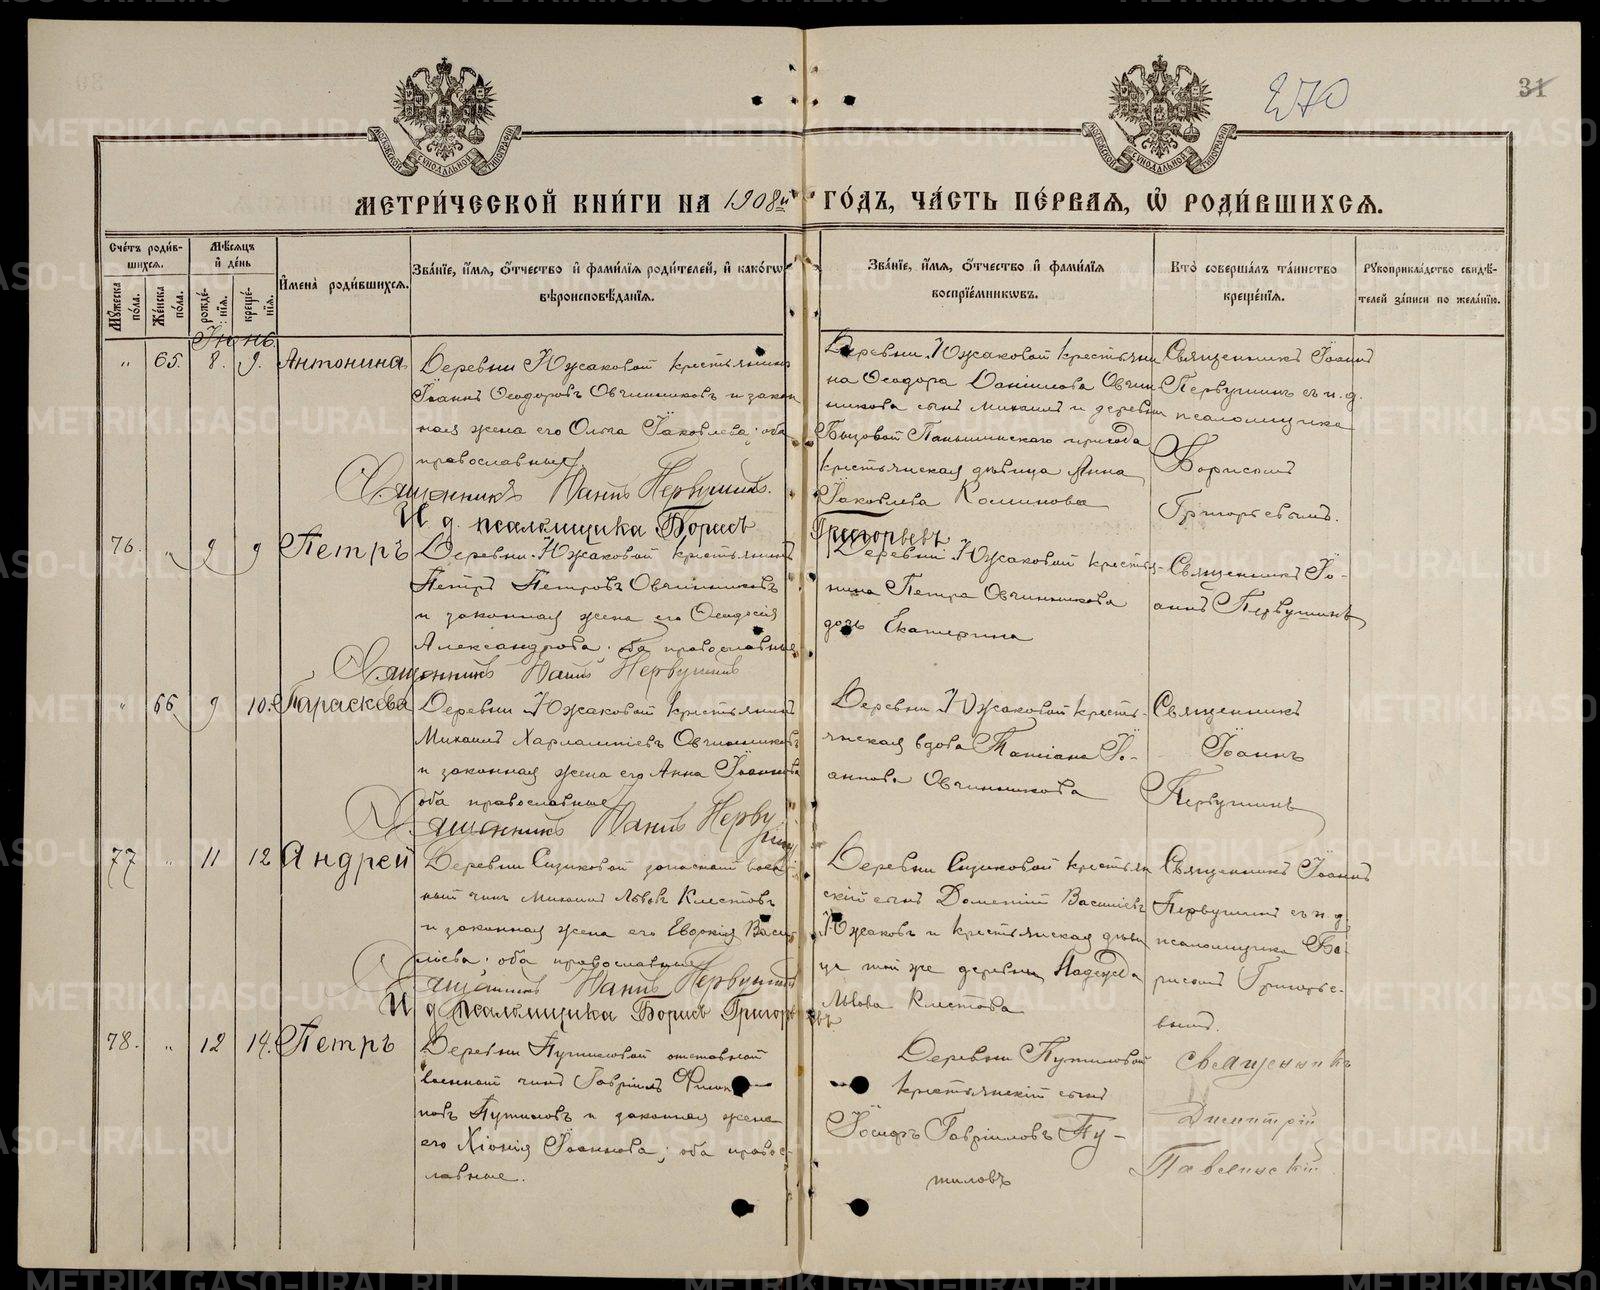 270
31
МОСКОВСКОЙ СѴНОДАЛЬНОЙ ТИПОГРАФІИ
МОСКОВСКОЙ СѴНОДАЛЬНОЙ ТИПОГРАФІИ
МЕТРИ́ЧЕСКОЙ КНИ́ГИ НА 1908й ГО́ДЪ, ЧА́СТЬ ПЕ́РВАЯ, Ѡ҆ РОДИ́ВШИХСЯ.
Сче́тъ роди́в-
шихся.
Мѣ́сяцъ
и҆ де́нь
Му́жеска по́ла.
Же́нска по́ла.
рожде́-
нїя.
креще́-
нїя.
И҆мена̀ роди́вшихся.
Зва́нїе, и҆́мя, ѻ҆́тчество и҆ фами́лїя роди́телей, и҆ како́гѡ
вѣроисповѣ́данїя.
Зва́нїе, и҆́мя, ѻ҆́тчество и҆ фами́лїя
воспрїе́мниковъ.
Кто̀ соверша́лъ та́инство
креще́нїя.
Рукоприкла́дство свидѣ́-
телей за́писи по жела́нїю.
Іюнь
" 65. 8. 9. Антонина
Деревни Южаковой крестьянинъ
Іоаннъ Ѳеодоровъ Овчинниковъ и закон
ная жена его Ольга Іаковлева; оба
православные
Священникъ Іоаннъ Первушинъ.
И. д. псаломщика Борисъ Григорьевъ
Деревни Южаковой крестьяни
на Ѳеодора Даніилова Овчин
никова сынъ Михаилъ и деревни
Бызовой Паньшинскаго прихода
крестьянская дѣвица Анна
Іаковлева
Священникъ Іоаннъ
Первушинъ съ и. д.
псаломщика
Борисомъ
Григорьевымъ.
76. " 9 9 Петръ
Деревни Южаковой крестьянинъ
Петръ Петровъ Овчинниковъ
и законная жена его Ѳеодосія
Александрова; оба православные
Священникъ Іоаннъ Первушинъ
Деревни Южаковой кресть-
нина Петра Овчинникова
дочь Екатерина
Священникъ Іо-
аннъ Первушинъ
" 66 9 10. Параскева
Деревни Южаковой крестьянинъ
Михаилъ Харлампіевъ Овчинниковъ
и законная жена его Анна Іоаннова
оба православные
Священникъ Іоаннъ Перву
шинъ
Деревни Южаковой кресть-
янская вдова Татіана Іо-
аннова Овчинникова
Священникъ
Іоаннъ
Первушинъ
77 " 11 12 Андрей
Деревни Сизиковой запасный воен
ный чинъ Михаилъ Львовъ Клестовъ
и законная жена его Евдокія Васи
льева; оба православные
Священникъ Іоаннъ Первушинъ
И. д. псаломщика Борисъ Григорьевъ
Деревни Сизиковой крестьян
скій сынъ Дометій Васильевъ
Южаковъ и крестьянская дѣви
ца той же деревни Надежда
Львова Клестова
Священникъ Іоаннъ
Первушинъ съ и. д.
псаломщика Бо-
рисомъ Григорье-
вымъ.
78. " 12 14. Петръ
Деревни Путиловой отставной
военный чинъ Гавріилъ
повъ Путиловъ и законная жена
его Хіонія Іоаннова; оба правос-
лавные.
Деревни Путиловой
крестьянскій сынъ
Іосифъ Гавріиловъ Пу-
тиловъ
Священникъ
Димитрій